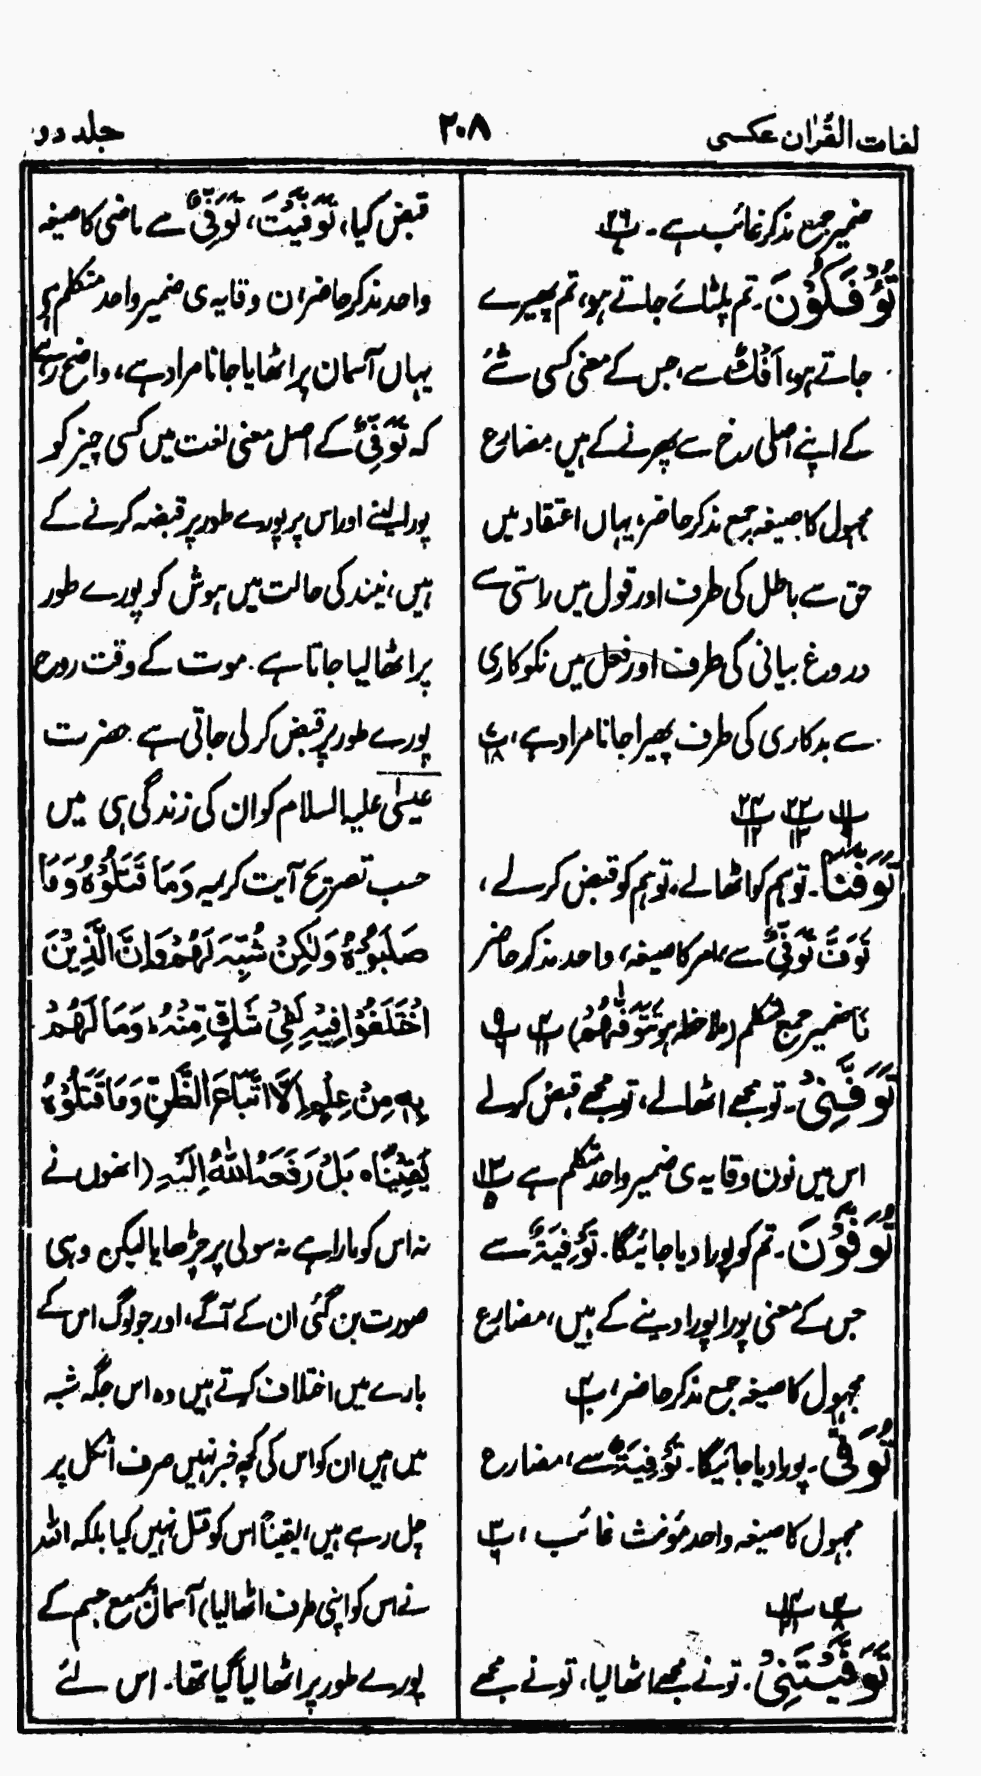 لغات القرآن عکسی
۲۰۸
جلد دو
ضمیر جمع مذکر غائب ہے۔
تُؤْفَكُوْنَ۔ تم پلٹائے جاتے ہو، تم پھیرے
جاتے ہو، اَفْكٌ سے، جس کے معنی کسی شئے
کے اپنے اصلی رخ سے پھرنے کے ہیں مضارع
مجہول کا صیغہ جمع مذکر حاضر، یہاں اعتقاد میں
حق سے باطل کی طرف اور قول میں راستی سے
دروغ بیانی کی طرف اور فعل میں نکوکاری
سے بدکاری کی طرف پھیرا جانا مراد ہے،
تَوَفَّنَا۔ تو ہم کو اٹھالے، تو ہم کو قبض کرلے،
تَوَفَّ تَوَفِّیْ سے، امر کا صیغہ، واحد مذکر حاضر
نَا ضمیر جمع متکلم (ملاحظہ ہو تَتَوَفّٰهُمْ)
تَوَفَّنِیْ۔ تو مجھے اٹھالے، تو مجھے قبض کرلے
اس میں نون وقایہ ی ضمیر واحد متکلم ہے
تُوَفَّوْنَ۔ تم کو پورا دیا جائیگا۔ تَوْفِیَةٌ سے
جس کے معنی پورا پورا دینے کے ہیں، مضارع
مجہول کا صیغہ جمع مذکر حاضر،
تُوَفّٰی۔ پورا دیا جائیگا۔ تَوْفِیَةٌ سے، مضارع
مجہول کا صیغہ واحد مؤنث غائب،
تَوَفَّیْتَنِیْ۔ تونے مجھے اٹھالیا، تونے مجھے
قبض کیا، تَوَفَّیْتَ، تَوَفِّیْ سے ماضی کا صیغہ
واحد مذکر حاضر، ن وقایہ ی ضمیر واحد متکلم ہے
یہاں آسمان پر اٹھایا جانا مراد ہے، واضح رہے
کہ تَوَفِّیْ کے اصل معنی لغت میں کسی چیز کو
پورا لینے اور اس پر پورے طور پر قبضہ کرنے کے
ہیں، نیند کی حالت میں ہوش کو پورے طور
پر اٹھا لیا جاتا ہے۔ موت کے وقت روح
پورے طور پر قبض کرلی جاتی ہے۔ حضرت
عیسٰی علیہ السلام کو ان کی زندگی ہی میں
حسب تصریح آیت کریمہ وَمَا قَتَلُوْهُ وَمَا
صَلَبُوْهُ وَلٰكِنْ شُبِّهَ لَهُمْ وَاِنَّ الَّذِیْنَ
اخْتَلَفُوْا فِیْهِ لَفِیْ شَكٍّ مِّنْهُ، وَمَا لَهُمْ
بِهٖ مِنْ عِلْمٍ اِلَّا اتِّبَاعَ الظَّنِّ وَمَا قَتَلُوْهُ
یَقِیْنًا، بَلْ رَفَعَهُ اللّٰهُ اِلَیْهِ (انھوں نے
نہ اس کو مارا ہے نہ سولی پر چڑھایا لیکن وہی
صورت بن گئی ان کے آگے، اور جو لوگ اس کے
بارے میں اختلاف کرتے ہیں وہ اس جگہ شبہ
میں ہیں ان کو اس کی کچھ خبر نہیں صرف اٹکل پر
چل رہے ہیں، یقیناً اس کو قتل نہیں کیا بلکہ اللہ
نے اس کو اپنی طرف اٹھالیا) آسمان پر مع جسم کے
پورے طور پر اٹھا لیا گیا تھا۔ اس لئے